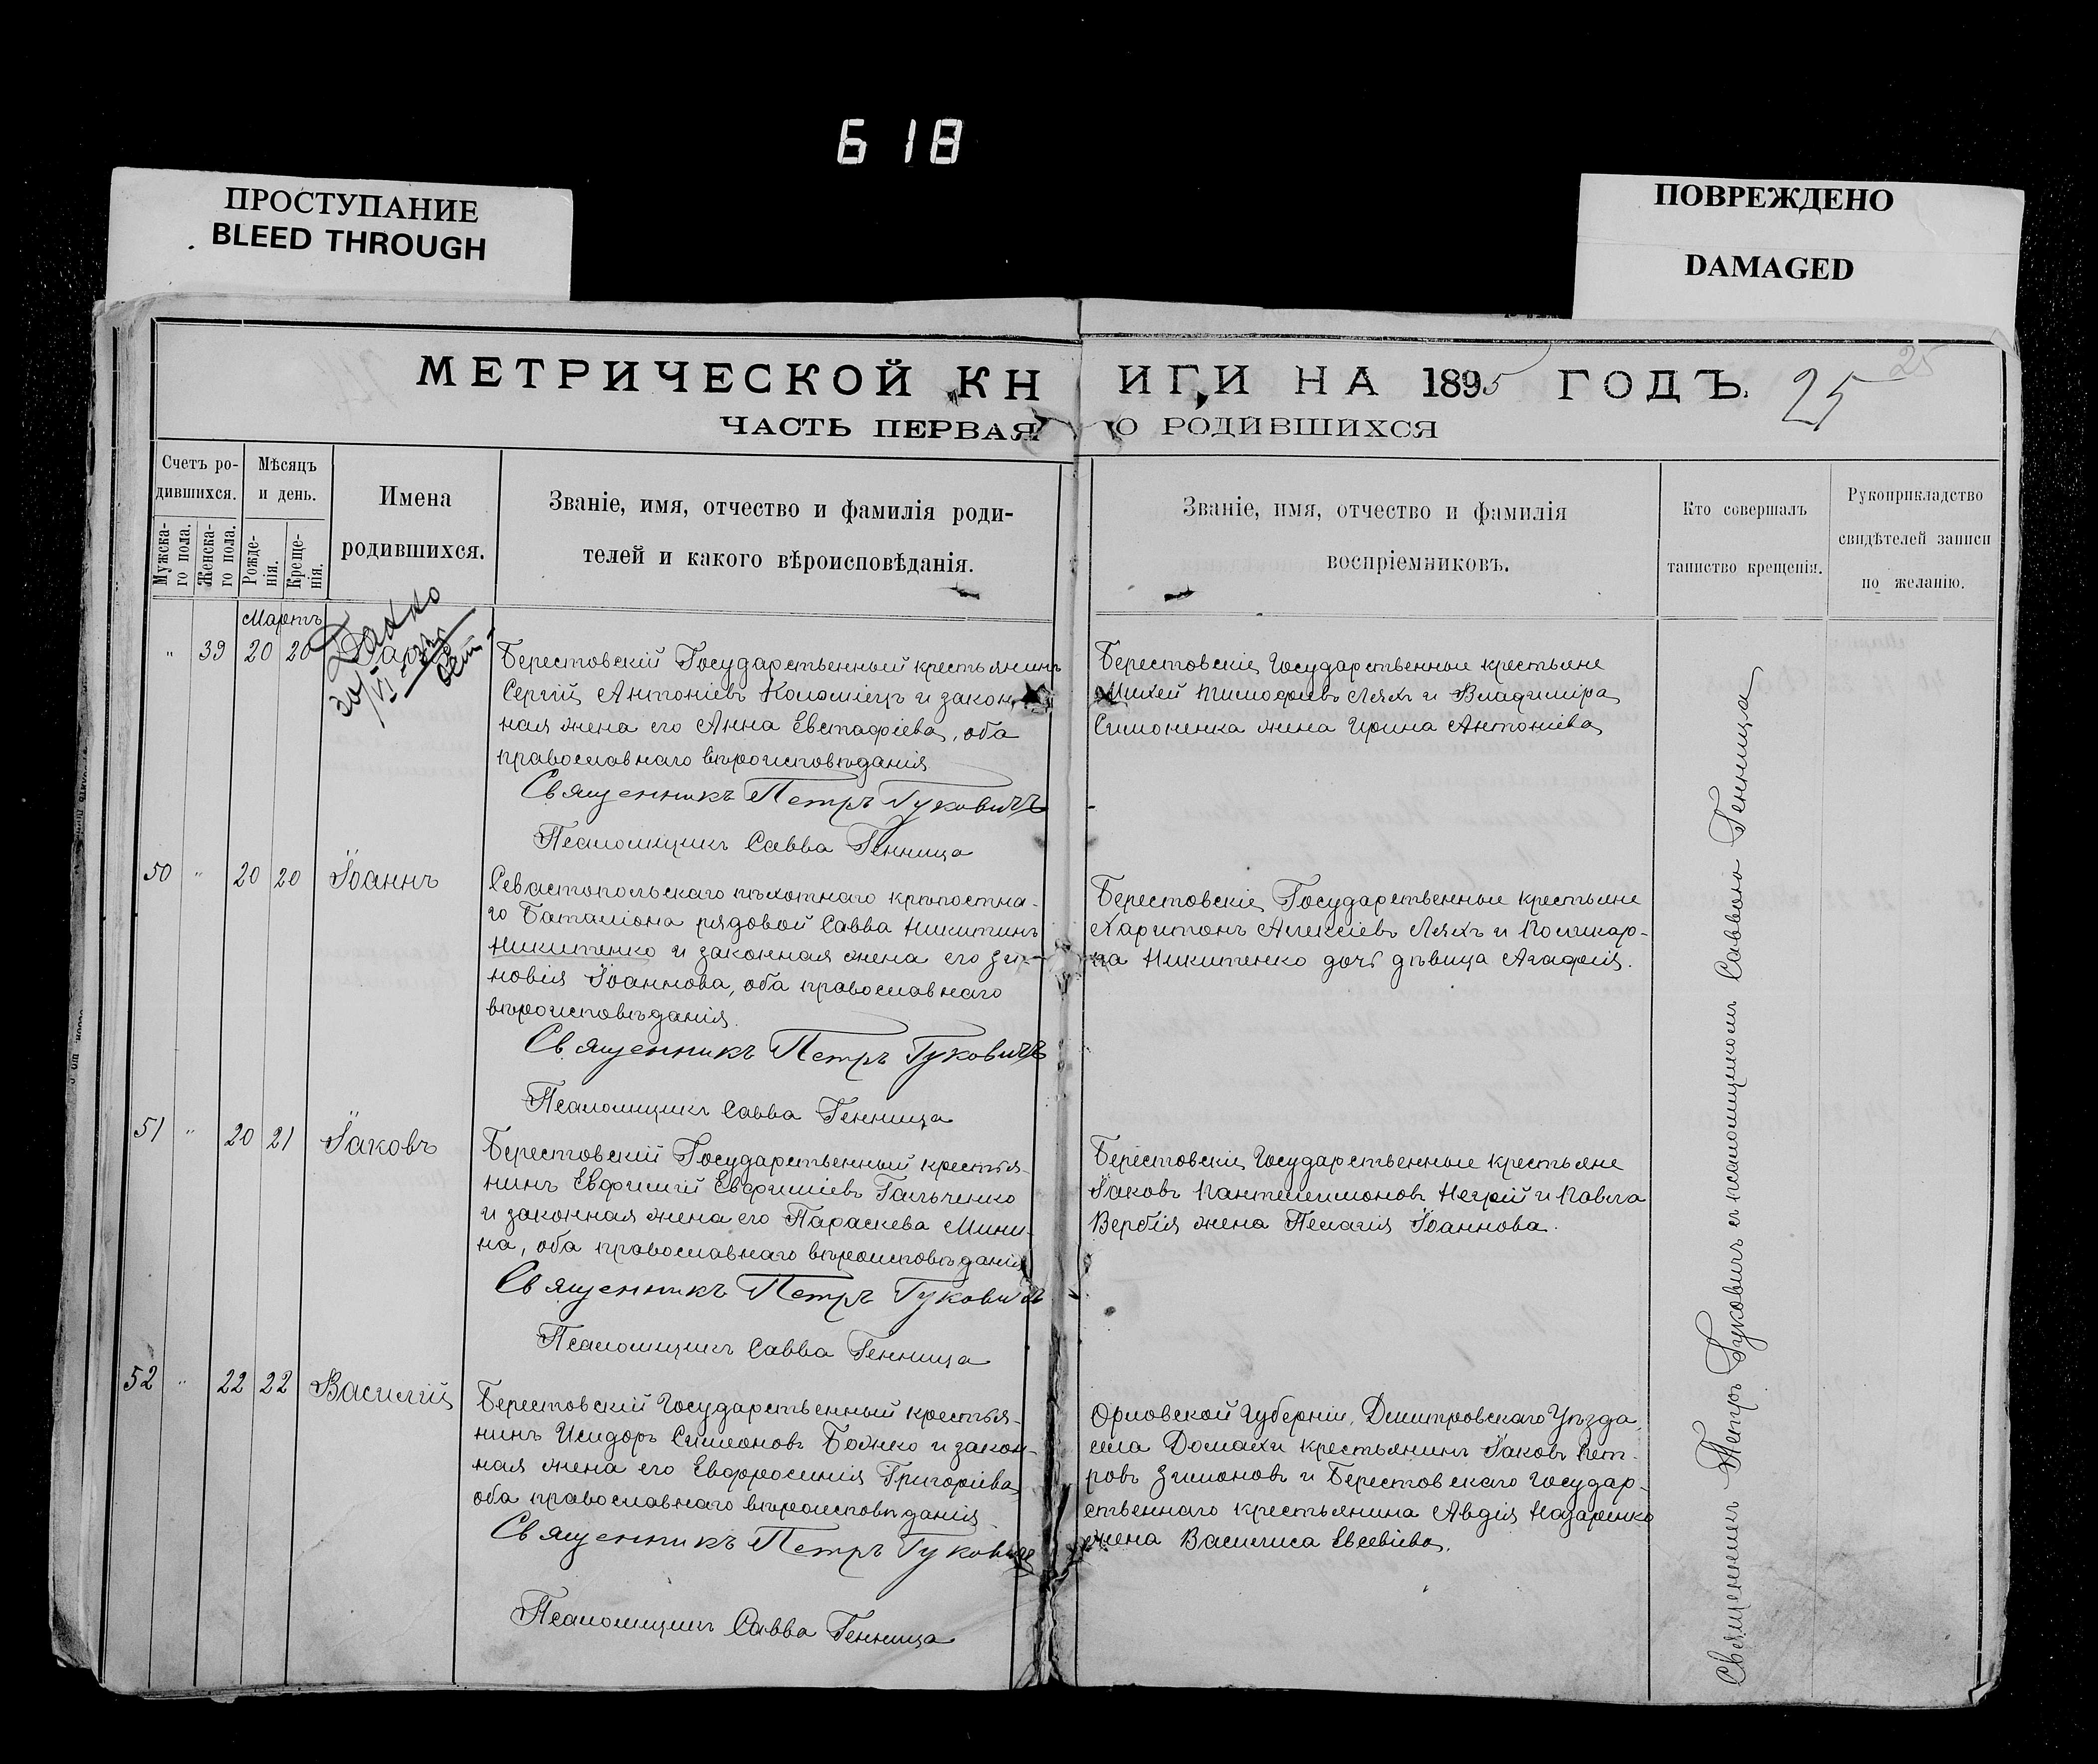 618
ПРОСТУПАНИЕ
BLEED THROUGH
ПОВРЕЖДЕНО
DAMAGED
МЕТРИЧЕСКОЙ КНИГИ НА 1895 ГОДЪ.
25
25
ЧАСТЬ ПЕРВАЯ О РОДИВШИХСЯ
Счетъ ро-
дившихся.
Мужска-
го пола.
Женска-
го пола.
Мѣсяцъ
и день.
Рожде-
нія.
Креще-
нія.
Имена
родившихся.
Званіе, имя, отчество и фамилія роди-
телей и какого вѣроисповѣданія.
Званіе, имя, отчество и фамилія
воспріемниковъ.
Кто совершалъ
таинство крещенія.
Рукоприкладство
свидѣтелей записи
по желанію.
Мартъ
" 39 20 20
Берестовскій Государственный крестьянинъ
Сергій Антоніевъ Коломіецъ и закон-
ная жена его Анна Евстафіева, оба
православнаго вѣроисповѣданія
Священникъ Петръ Гуковичъ
Псаломщикъ Савва Генница
Берестовскіе Государственные крестьяне
Михей Тимофіевъ Ляхъ и Владиміра
Симоненка жена Ирина Антоніева
50 " 20 20 Іоаннъ
Севастопольскаго пѣхотнаго крѣпостна-
го Баталіона рядовой Савва Никитинъ
Никитенко и законная жена его Зи-
новія Іоаннова, оба православнаго
вѣроисповѣданія.
Священникъ Петръ Гуковичъ
Псаломщикъ Савва Генница
Берестовскіе Государственные крестьяне
Харитонъ Алексіевъ Ляхъ и Поликар-
па Никитенко дочь дѣвица Агафія.
51 " 20 21 Іаковъ
Берестовскій Государственный крестья-
нинъ Евфимій Евфиміевъ Гальченко
и законная жена его Параскева Мини-
на, оба православнаго вѣроисповѣданія
Священникъ Петръ Гуковичъ
Псаломщикъ Савва Генница
Берестовскіе Государственные крестьяне
Іаковъ Пантелимоновъ Негрій и Павла
Вербія жена Пелагія Іоаннова.
52 " 22 22 Василій
Берестовскій Государственный крестья-
нинъ Исидоръ Симоновъ Божко и закон-
ная жена его Евфросинія Григоріева
оба православнаго вѣроисповѣданія
Священникъ Петръ Гуковичъ
Псаломщикъ Савва Генница
Орловской Губерніи, Дмитровскаго Уѣзда,
села Домахи крестьянинъ Іаковъ Пет-
ровъ Зимоновъ и Берестовскаго Государ-
ственнаго крестьянина Авдія Назаренко
жена Василиса Евсевіева.
Священникъ Петръ Гуковичъ съ псаломщикомъ Саввою Генница